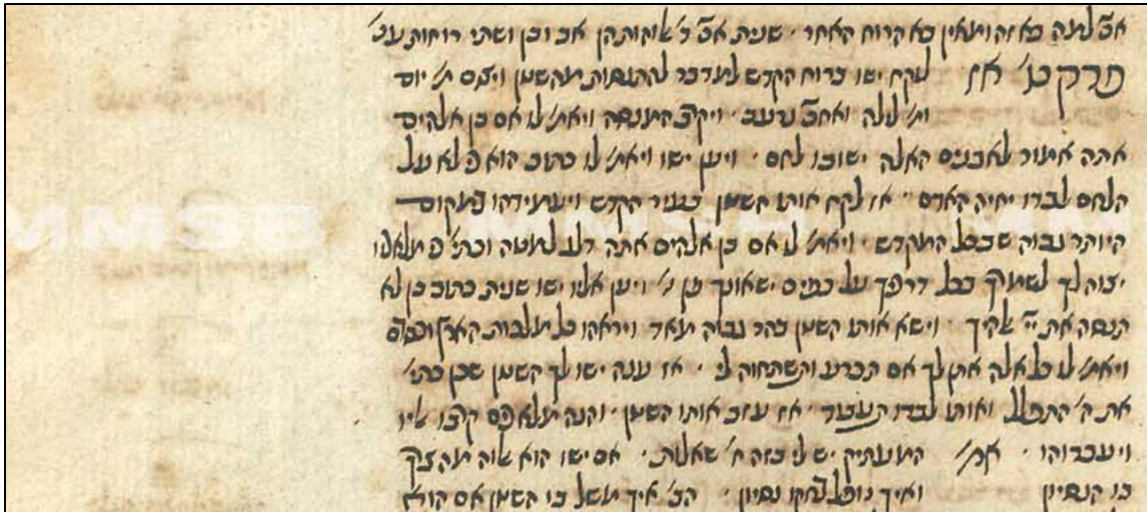 אמ' למה ומאין בא הרוח האחר · שנית אמ' אב ובן ושתי רוחות
פרק אז לקח ישו ברוח הקדש למדבר להתנסות מהשטן ויצם מ' יום
ומ' לילה ואחר נרעב · ויקרב המנסה ויאמ' לו אם בן אלהים
אתה אמור לאבנים האלה ישובו לחם · ויען ישו ויאמ' לו כתוב הוא כי לא על
הלחם לבדו יחיה האדם · אז לקח אותו השטן בעיר הקדש ויעמידהו במקום
היותר גבוה שבכל המקדש · ויאמ' לו אם בן אלהים אתה דלג למטה וכת' כי מלאכיו
יצוה לך לשמרך בכל דרכיך על כפים ישאונך ויען אליו ישו שנית כתוב לא
תנסה את יי' אלהיך וישא אותו השטן בהר גבוה מאד ויראהו כל ממלכות הארץ וכבודם
ויאמ' לו כל אלה אתן לך אם תכרע ותשתחוה לי · אז ענה ישו לך השטן שכן כתי'
את ה' התפלל ואותו לבדו תעבוד · אז עזב אותו השטן · והנה מלאכים קרבו אליו
ויעבדוהו · אמ' המעתיק יש לי בזה ח' שאלות · אם ישו הוא אלוה מה
בו הנסיון ואיך נופל בחקו נסיון · הב' איך משל בו השטן אם הוא